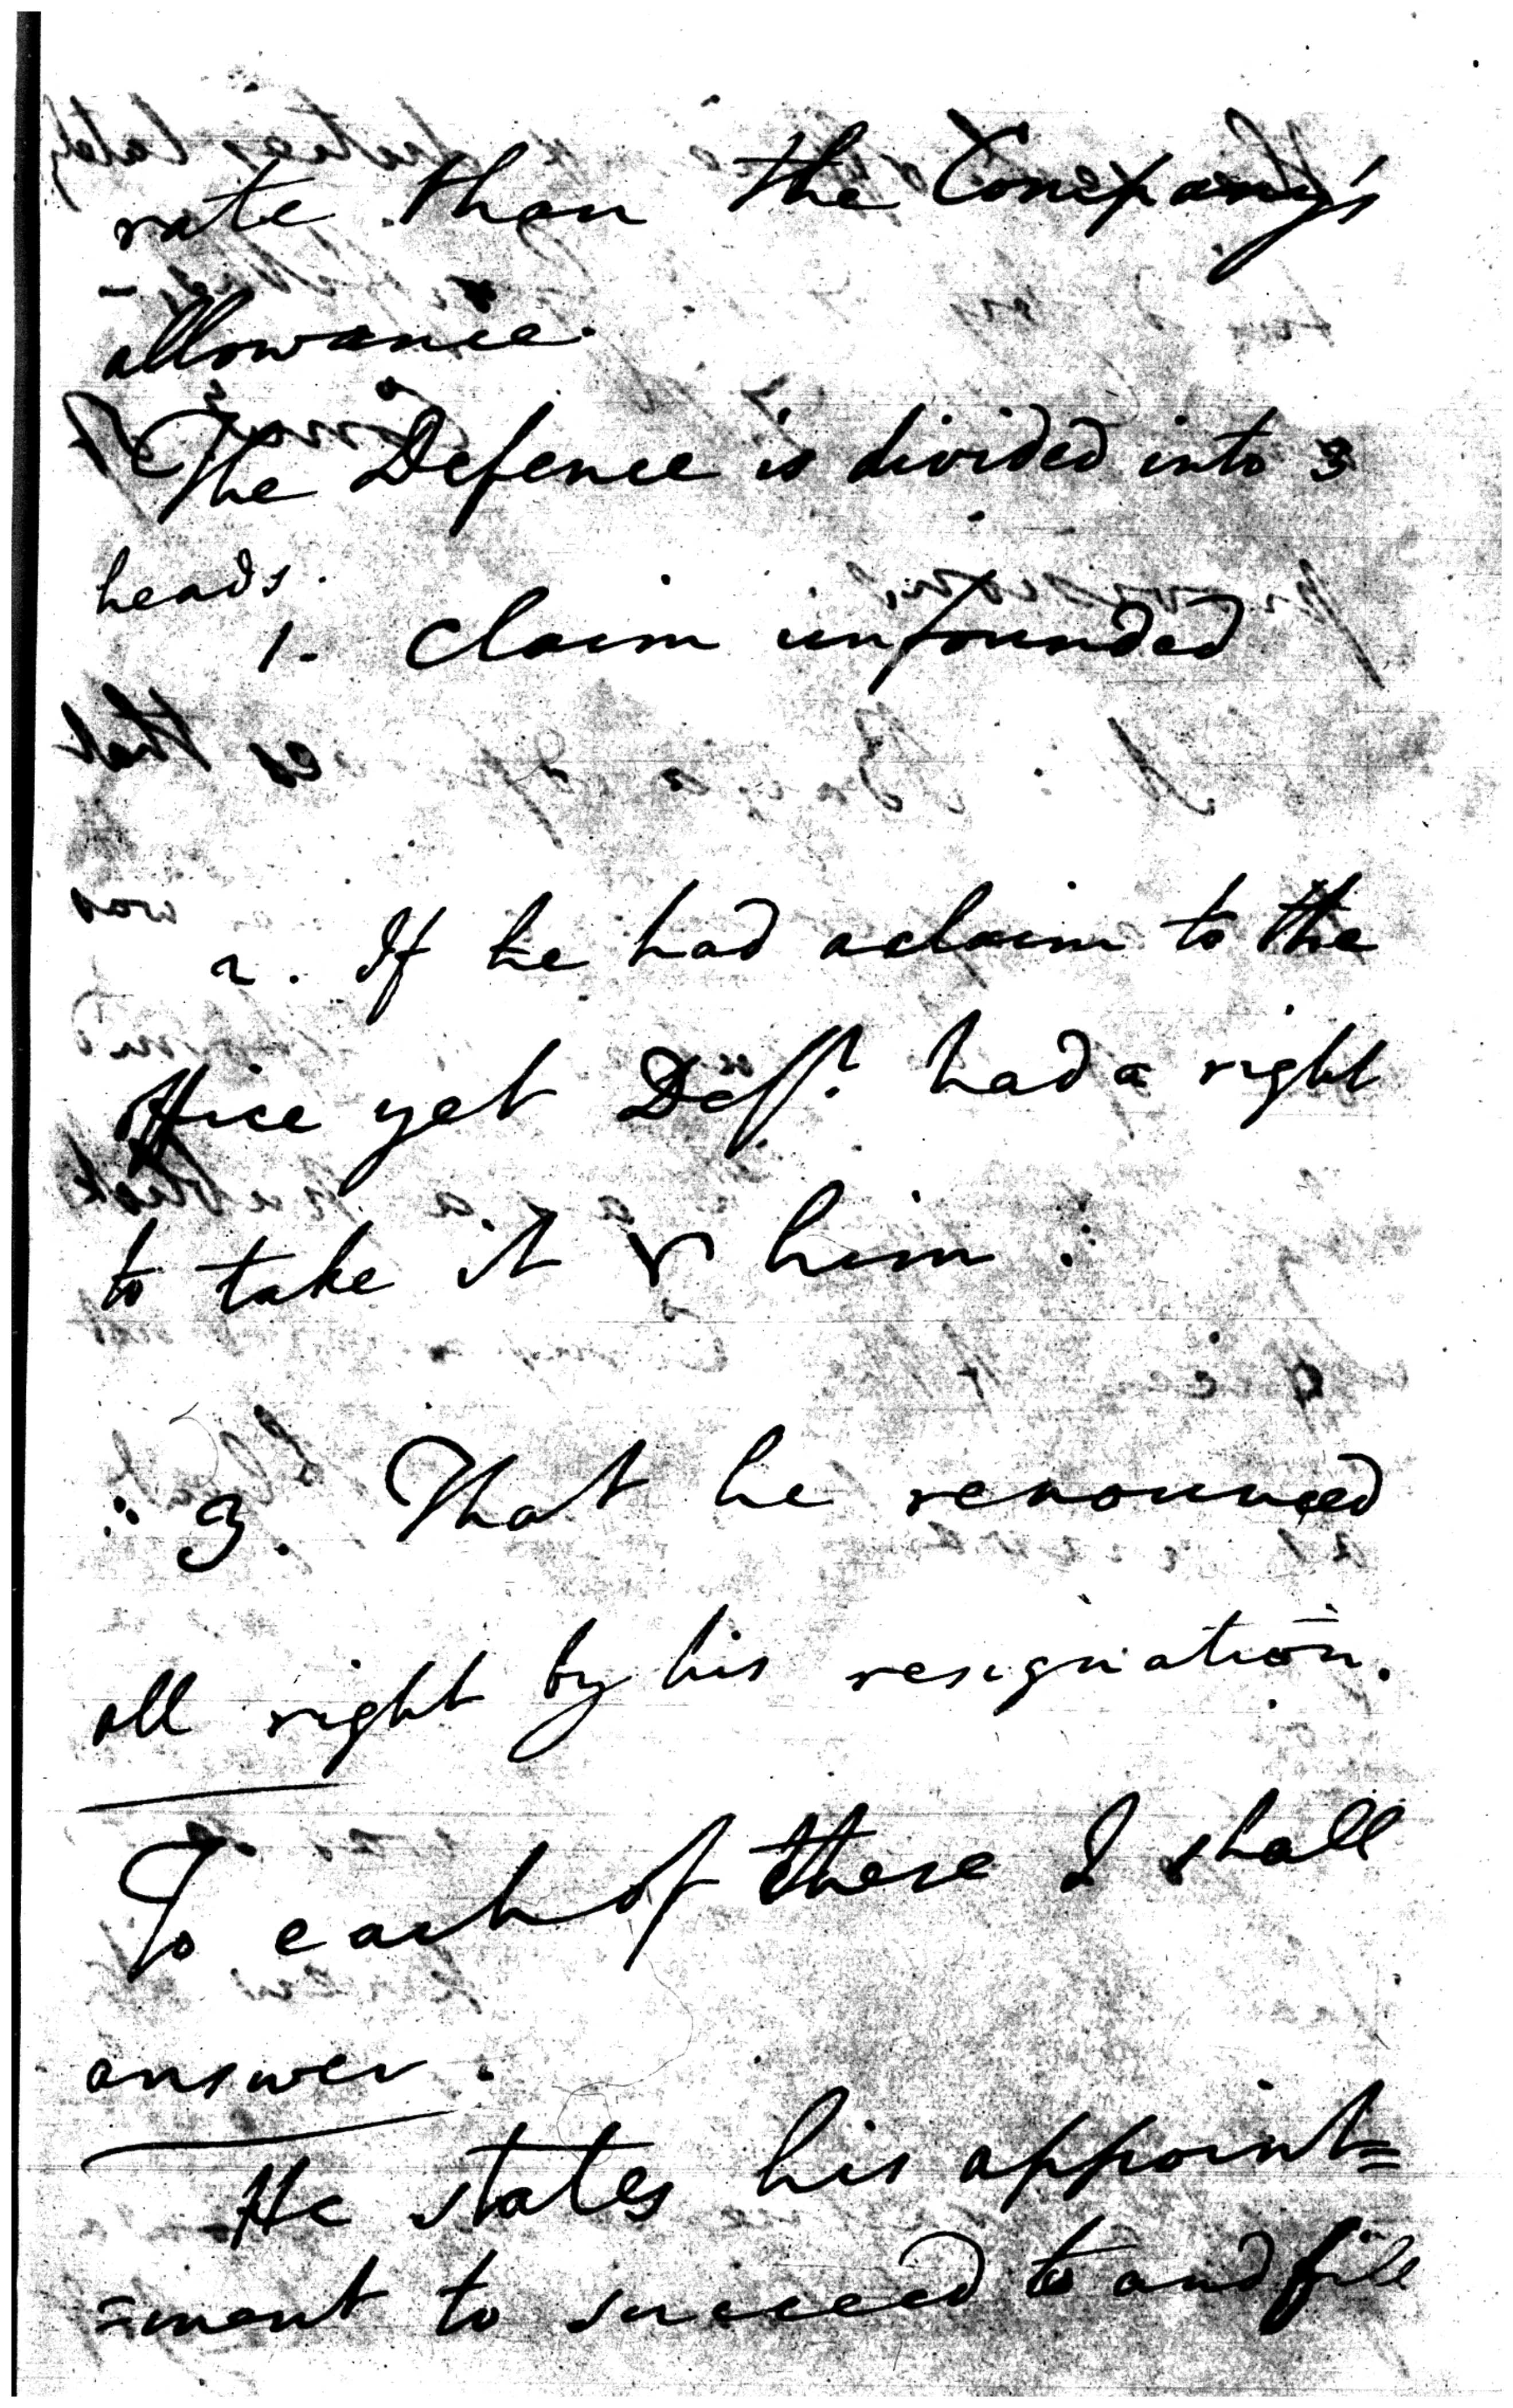 rate than the Company's
allowance.
The Defence is divided into 3
heads.
1. Claim unfounded
2. If he had a claim to the
office yet Deft. had a right
to take it him.
3. That he renounced
all right by his resignation.
To each of these I shall
answer.
He states his appoint=
=ment to succeed to and fill